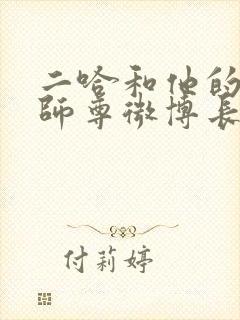 二哈和他的
師尊微博長
付莉婷